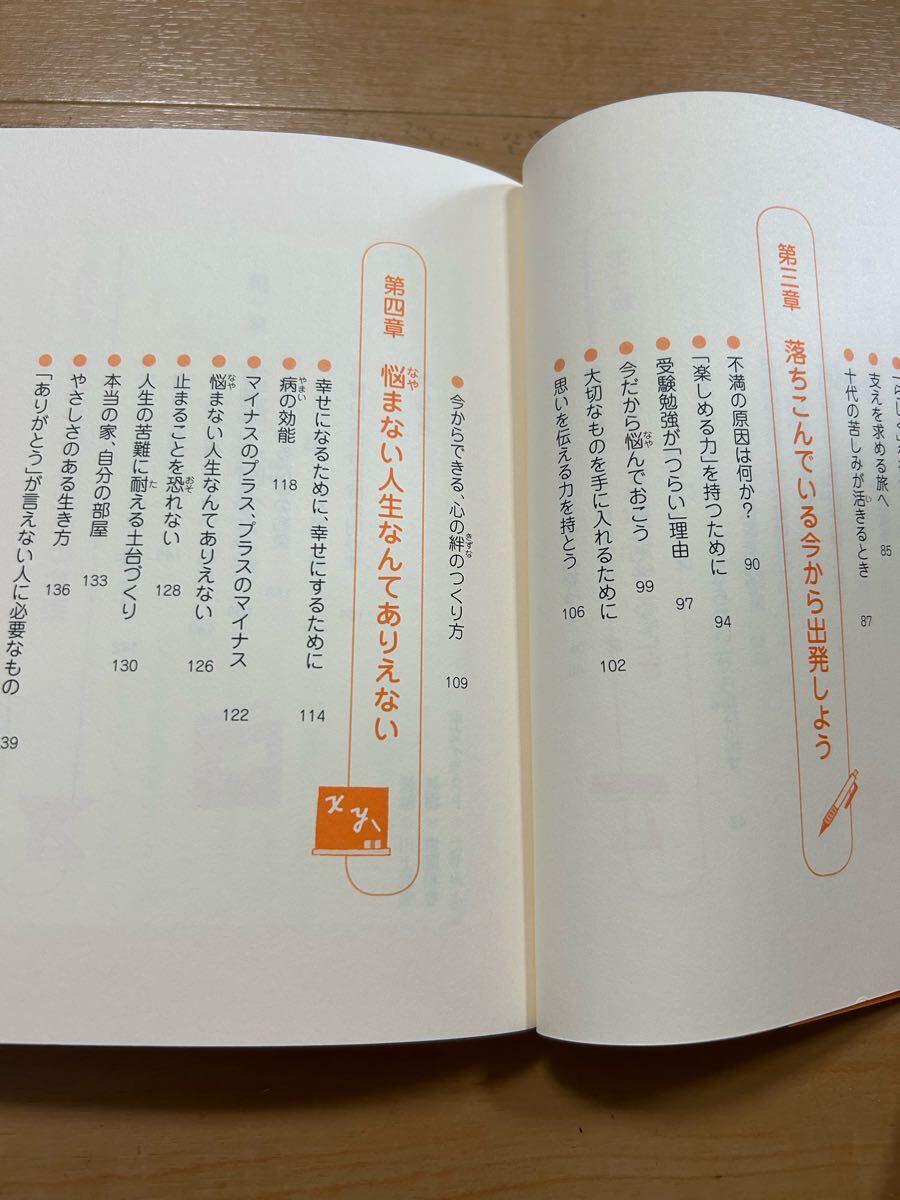 支えを求める旅へ 85
十代の苦しみが活きるとき 87
第三章 落ちこんでいる今から出発しよう
不満の原因は何か? 90
「楽しめる力」を持つために 94
受験勉強が「つらい」理由 97
今だから悩んでおこう 99
大切なものを手に入れるために 102
思いを伝える力を持とう 106
今からできる、心の絆のつくり方 109
第四章 悩まない人生なんてありえない
幸せになるために、幸せにするために 114
病の効能 118
マイナスのプラス、プラスのマイナス 122
悩まない人生なんてありえない 126
止まることを恐れない 128
人生の苦難に耐える土台づくり 130
本当の家、自分の部屋 133
やさしさのある生き方 136
「ありがとう」が言えない人に必要なもの 39